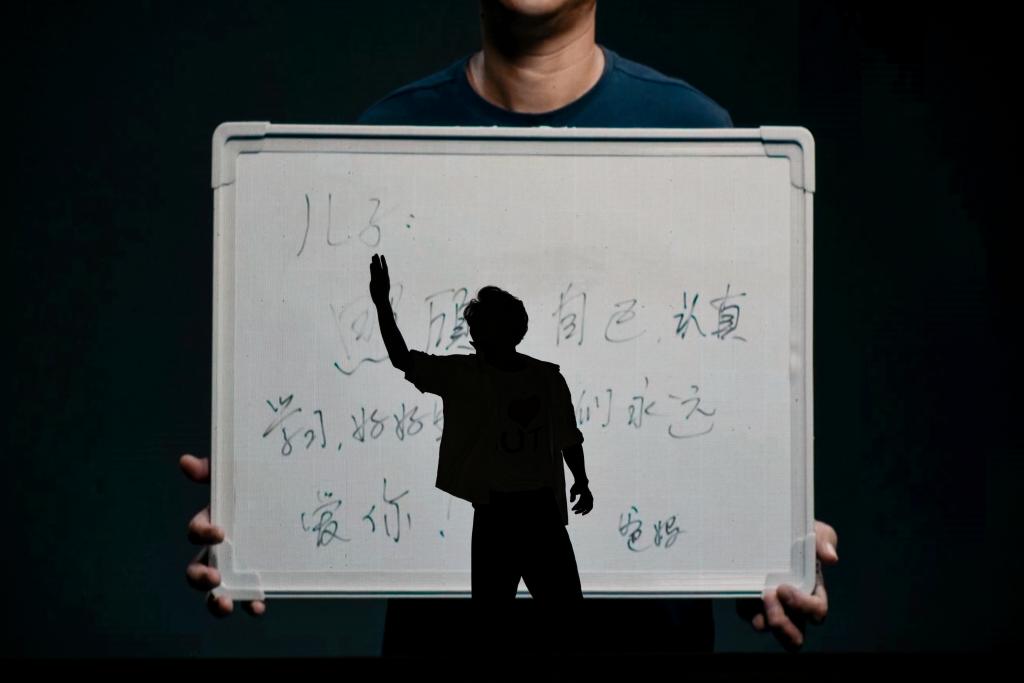 儿子:
照顾 自己,认真
学习,好好 们永远
爱你!
爸妈
UT